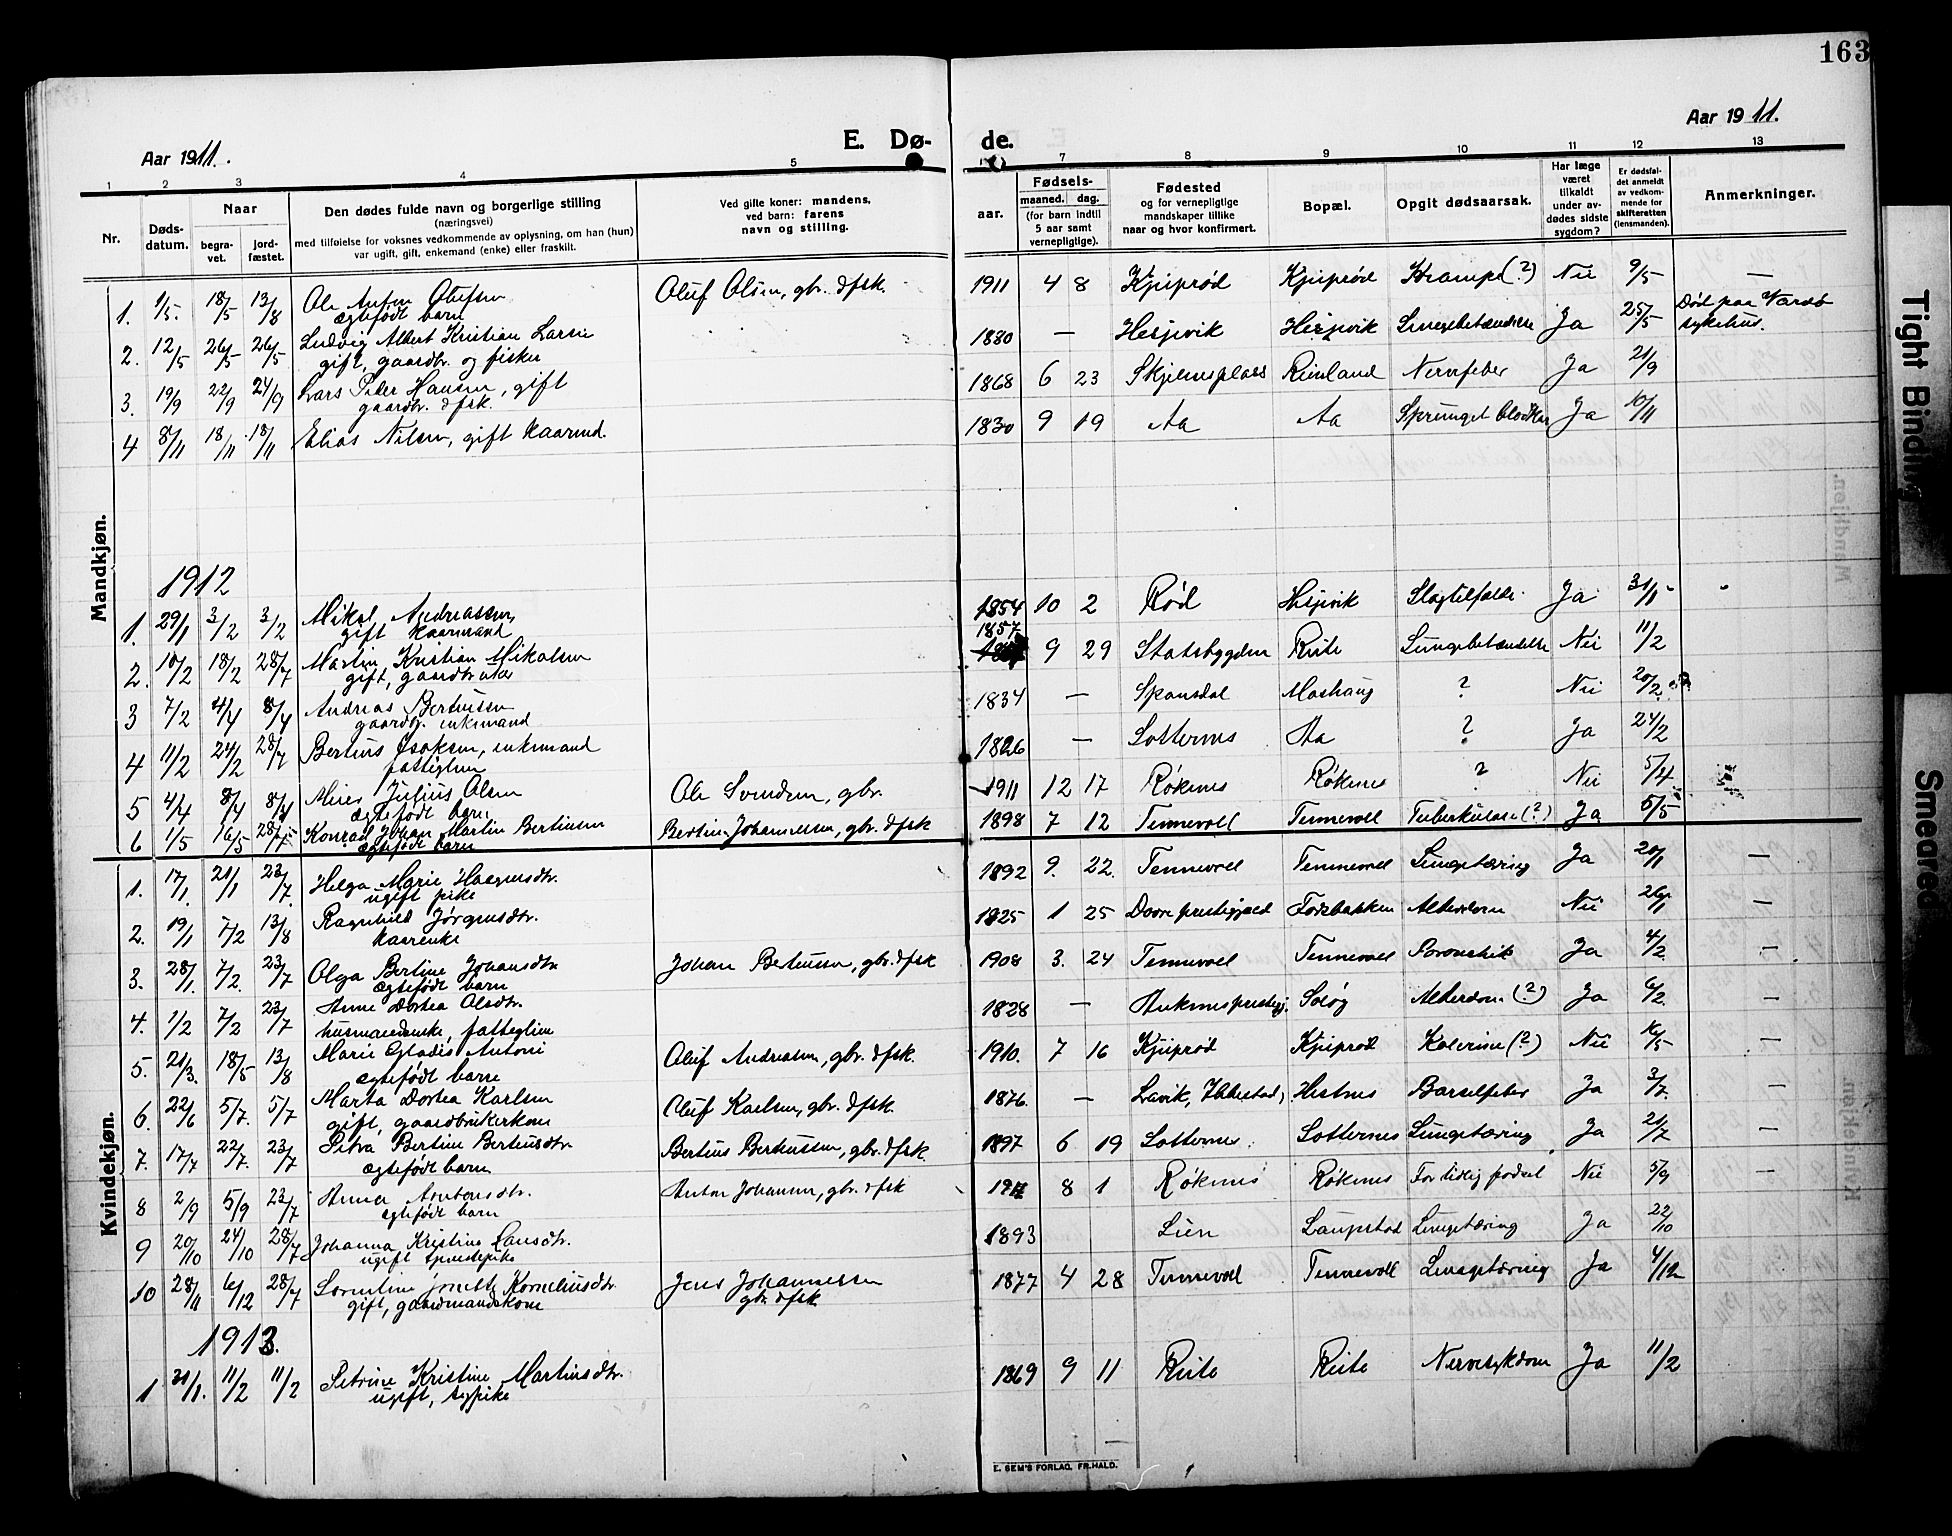 163
Aar 1911.
E. Dø-
de.
Aar 1911.
1 2 3 4 5 7 8 9 10 11 12 13
Nr.
Døds-
datum.
Naar
begra-
vet.
jord-
fæstet.
Den dødes fulde navn og borgerlige stilling
(næringsvei)
med tilføielse for voksnes vedkommende av oplysning, om han (hun)
var ugift, gift, enkemand (enke) eller fraskilt.
Ved gifte koner: mandens,
ved barn: farens
navn og stilling.
aar.
Fødsels-
maaned. dag.
(for barn indtil
5 aar samt
vernepligtige).
Fødested
og for vernepligtige
mandskaper tillike
naar og hvor konfirmert.
Bopæl.
Opgit dødsaarsak.
Har læge
været
tilkaldt
under av-
dødes sidste
sygdom?
Er dødsfal-
det anmeldt
av vedkom-
mende for
skifteretten
(lensmanden).
Anmerkninger.
Mandkjøn.
1. 1/5. 18/5 13/8 Ole Anton Olufsen Oluf Olsen, gbr. & fsk. 1911 4 8 Kjeiprød Kjeiprød Krampe (?) Nei 9/5 —
ægtefødt barn
2. 12/5 26/5 26/5 Ludvig Albert Kristian Larsen 1880 — Hesjevik Hesjevik Lungebetændelse Ja 25/5 Død paa Vardø
gift, gaardbr. og fisker sykehus.
3. 19/9 22/9 24/9 Lars Peder Hansen, gift 1868 6 23 Skjelnesplads Renland Nervefeber Ja 21/9
gaardbr. & fsk.
4 8/11 18/11 18/11 Elias Nilsen, gift kaarmd. 1830 9 19 Aa Aa Sprunget blodkar Ja 10/11
1912
1. 29/1 3/2 3/2 Mikal Andreassen, 1854 10 2 Rød Hesjevik Slagtilfælde. Ja 31/1
gift kaarmand
1857
2. 10/2 18/2 28/7 Martin Kristian Mikalsen 9 29 Statsbygden Reite Lungebetændelse Nei 11/2
gift, gaardbruker
3 7/2 4/4 8/4 Andreas Berteussen 1834 — Spansdal Moshaug ? Nei 20/2
gaardbr. enkemand
4 11/2 24/2 28/7 Berteus Isaksen, enkemand 1826 — Lotternes Aa ? Ja 24/2
fattiglem
5 4/4 8/4 8/4 Julius Olsen Ole Svendsen, gbr. 1911 12 17 Røkenes Røkenes ? Nei 5/4
ægtefødt barn
6 1/5 16/5 28/7 Konrad Johan Martin Berteussen Berteus Johannessen, gbr. & fsk 1898 7 12 Tennevoll Tennevoll Tuberkulose (?) Ja 5/5
ægtefødt barn
Kvindekjøn.
1. 17/1. 21/1 23/7. Helga Marie Haagensdtr. 1892 9. 22. Tennevoll Tennevoll Lungetæring Ja 20/1 —
ugift pike
2. 19/1 7/2 13/8 Ragnhild Jørgensdtr. 1825 1 25 Dovre prestegjeld Fossbakken Alderdom Nei 26/1 —
kaarenke
3. 28/1. 7/2. 23/7 Olga Bertine Johansdtr. Johan Berteussen, gbr. & fsk 1908 3. 24 Tennevoll Tennevoll Ja 4/2. —
ægtefødt barn
4. 1/2 7/2 23/7 Anne Dortea Olsdtr. 1828 — Soløy Alderdom (?) Ja 6/2. —
husmandsenke, fattiglem
5. 21/3. 18/5 13/8 Marie Gladis Antoni Oluf Andreassen, gbr. & fsk. 1910. 7 16 Kjeiprød Kjeiprød Kolerine (?) Nei 16/5 —
ægtefødt barn
6. 22/6 5/7. 5/7 Marta Dortea Karlsen Oluf Karlsen, gbr. & fsk. 1876. — Lavik, Ibbestad, Hestnes Barselfeber Ja 3/7. —
gift, gaardbrukerkone
7. 17/7 22/7. 23/7 Petra Bertine Berteusdtr. Berteus Berteussen, gbr. & fsk. 1897 6 19 Lotternes. Lotternes Lungetæring Ja 21/7 —
ægtefødt barn
8 2/9 5/9 23/7 Anna Antonsdtr. Anton Johansen, gbr. & fsk 1912 8 1 Røkenes Røkenes For tidlig fødsel Nei 5/9 —
ægtefødt barn
9 20/10 24/10 28/7 Johanna Kristine Larsdtr. 1893 Lien Laupstad Lungetæring Ja 22/10
ugift tjenestepike
10 28/11 6/12 28/7 Lorentine Jonette Korneliusdtr Jens Johannessen 1877 4 28 Tennevoll Tennevoll Lungetæring Ja 4/12
gift, gaardmandskone gbr. & fsk
1913.
1 31/1. 11/2 11/2 Petrine Kristine Martinsdtr. 1869 9 11 Reite Reite Nervesykdom Ja 11/2
ugift, sypike
E. SEM'S FORLAG, FR.HALD.
Tight Binding
Smeared